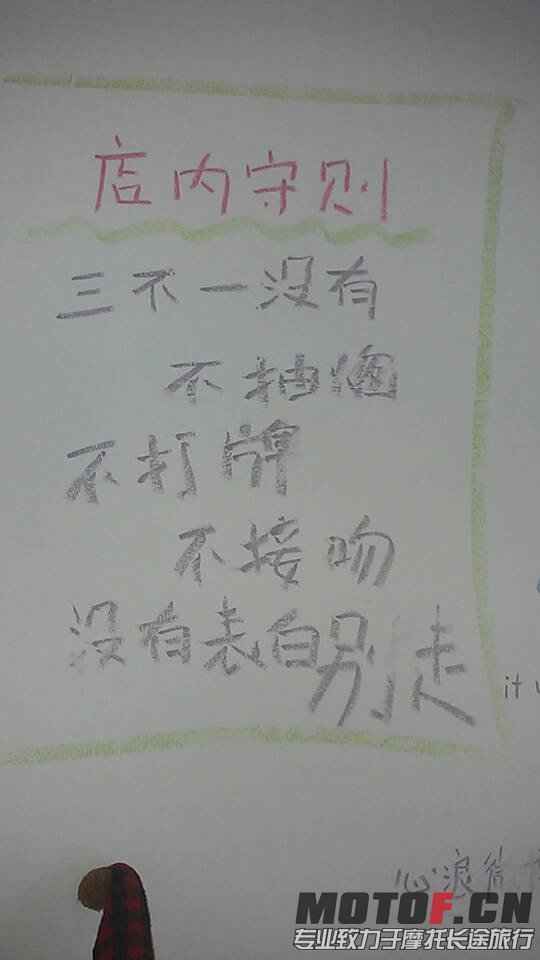 店内守则
三不一没有
不抽烟
不打牌
不接吻
没有表白别走
it
心浪微博
MOTOF.CN
专业致力于摩托长途旅行